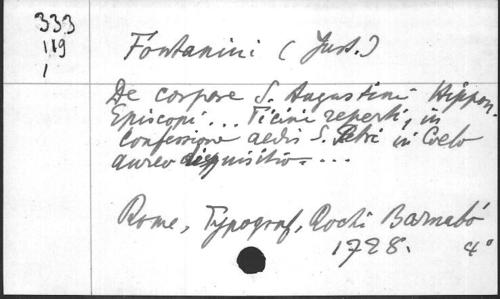 333
119
1
Fontanini (Just.)
De corpore S. Augustini Hippon.
Episcopi... Ticini reperti, in
Confessione aedis S. Petri in Coelo
aureo disquisitio....
Rome, Typograf, Rochi Barnabó
1728. 4°